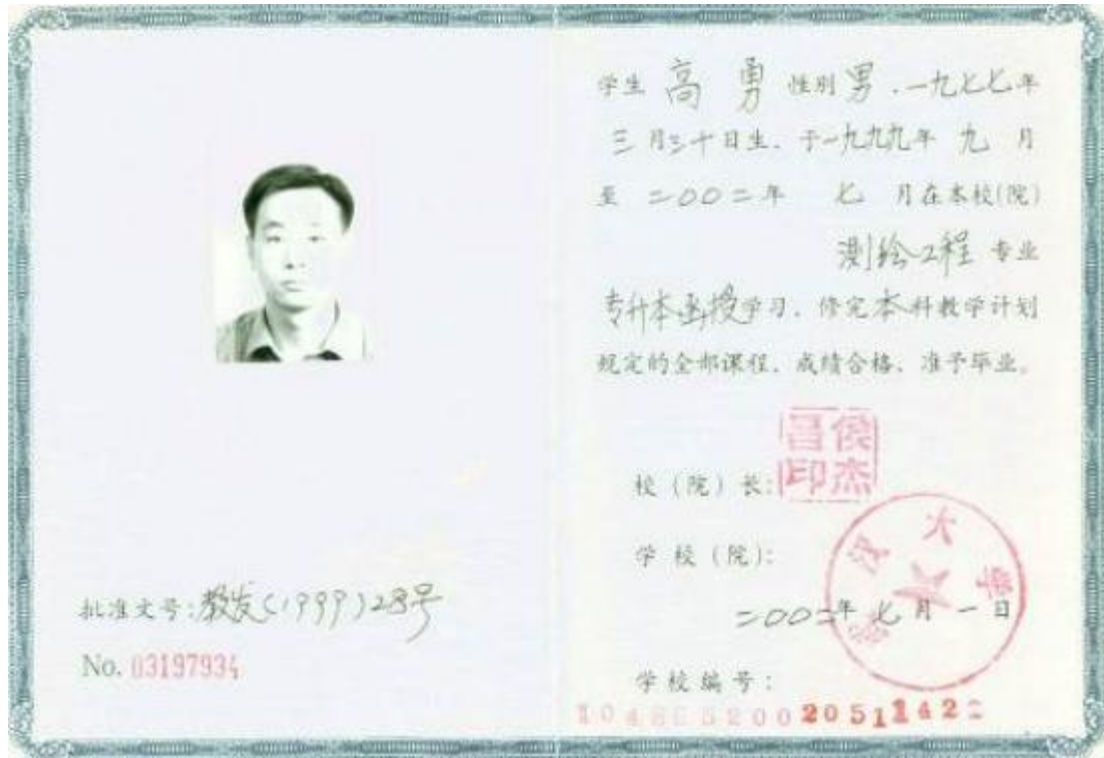 批准文号:教发(1999)28号
No. 03197934
学生 高 勇 性别 男,一九七七年
三月三十日生、于一九九九年 九 月
至 二00二年 七 月在本校(院)
测绘工程 专业
专升本函授学习、修完本科教学计划
规定的全部课程、成绩合格、准予毕业。
校(院)长:
侯杰昌印
学校(院):
武汉大学
二00二年 七 月 一 日
学校编号: